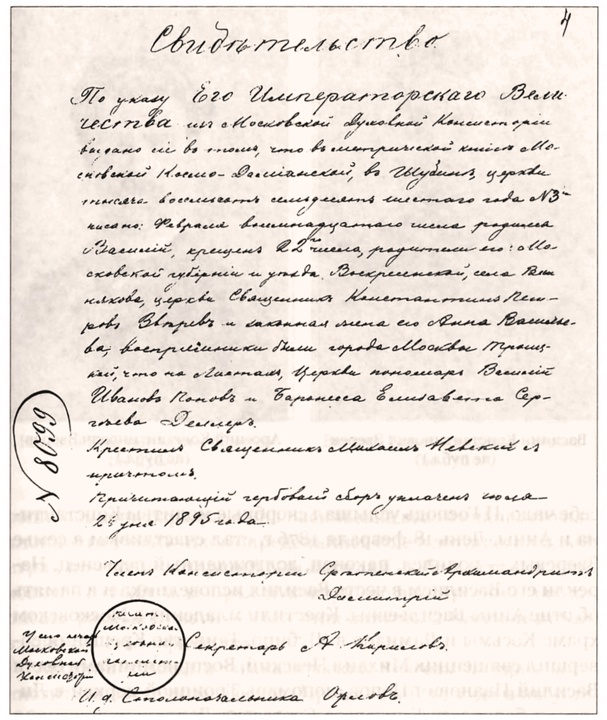 4
Свидѣтельство.
По указу Его Императорскаго Вели-
чества изъ Московской Духовной Консисторіи
выдано сіе въ томъ, что въ метрической книгѣ Мо-
сковской Космо-Даміанской, въ Шубинѣ, церкви
тысяча восемьсотъ семьдесятъ шестого года №3
писано: Февраля восемнадцатаго числа родился
Василій, крещенъ 22го числа, родители его: Мо-
сковской губерніи и уѣзда, Воскресенской, села
церкви Священникъ Константинъ Пет-
ровъ Звѣревъ и законная жена его Анна Василье-
ва; воспріемники были города Москвы Троиц-
кой, что на Листахъ, Церкви пономарь Василій
Ивановъ Поповъ и Баронесса Елисавета Сер-
гѣева Деллеръ.
Крестилъ Священникъ Михаилъ Невскій съ
причтомъ.
Причитающій гербовый сборъ уплаченъ іюля
2го дня 1895 года.
№ 8099
Членъ Консисторіи Срѣтенскій Архимандритъ
Секретарь А.
Московской
Духовной
Консисторіи
И. д. Столоначальника Орловъ.